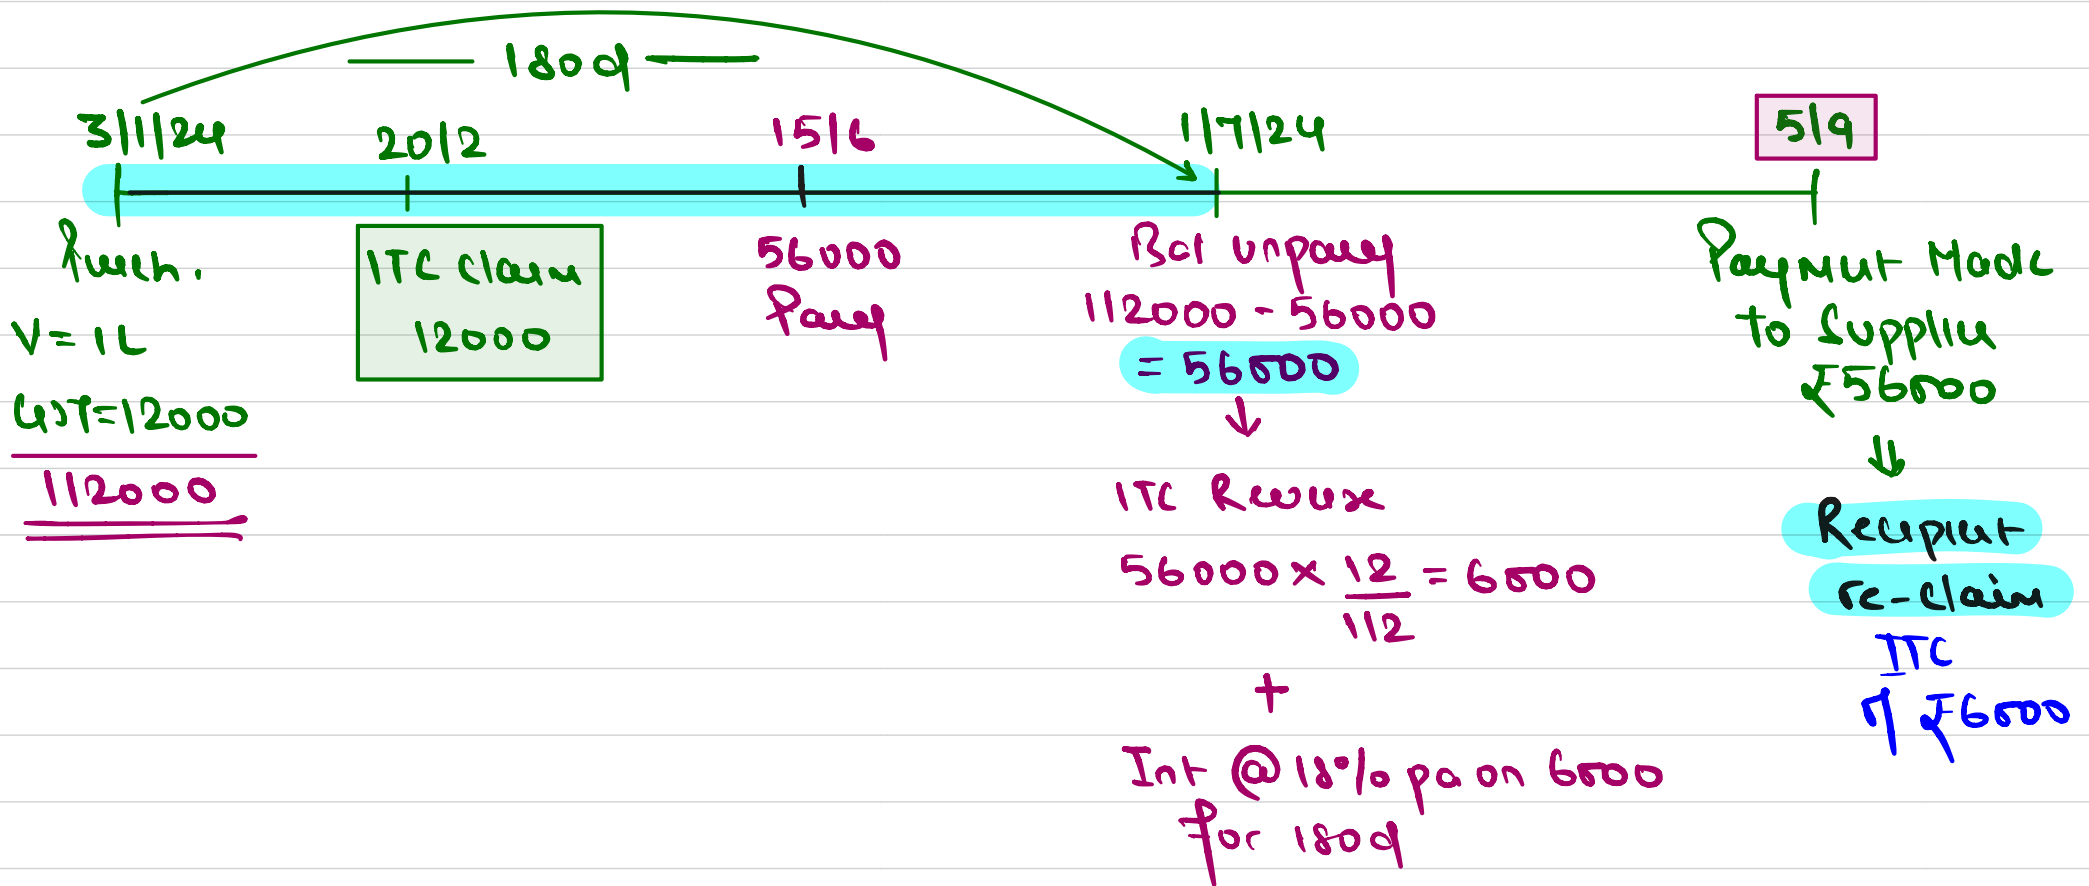 180d
3/1/24
20/2
15/6
1/7/24
5/9
Purch.
V = 1L
GST = 12000
112000
ITC Claim
12000
56000
Paid
Bal unpaid
112000 - 56000
= 56000
↓
ITC Reverse
56000 × 12/112 = 6000
+
Int @ 18% pa on 6000
for 180d
Payment Made
to Supplier
₹56000
⇓
Recipient
re-claim
ITC
of ₹6000